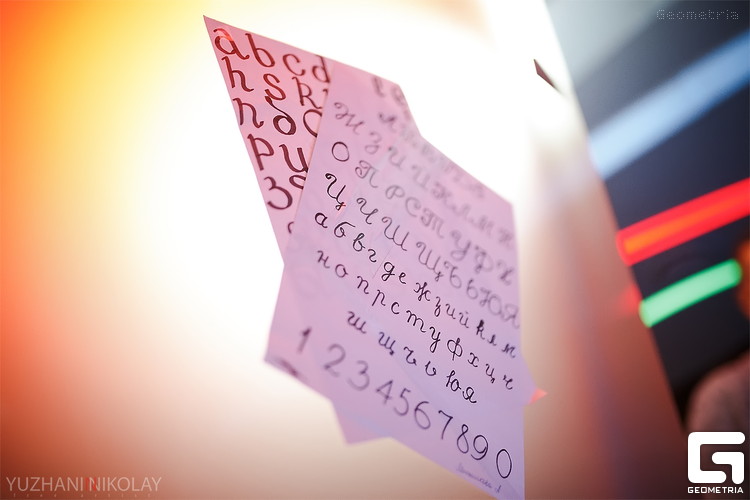 Geometria
abcd
hsk
по
ри
З
Ж З И Й К Л М Н
О П Р С Т У Ф Х
Ц Ч Ш Щ Ъ Ь Ю Я
а б в г д е ж з и й к л м
н о п р с т у ф х ц ч
ш щ ъ ы ь ю я
1 2 3 4 5 6 7 8 9 0
YUZHANI NIKOLAY
GEOMETRIA